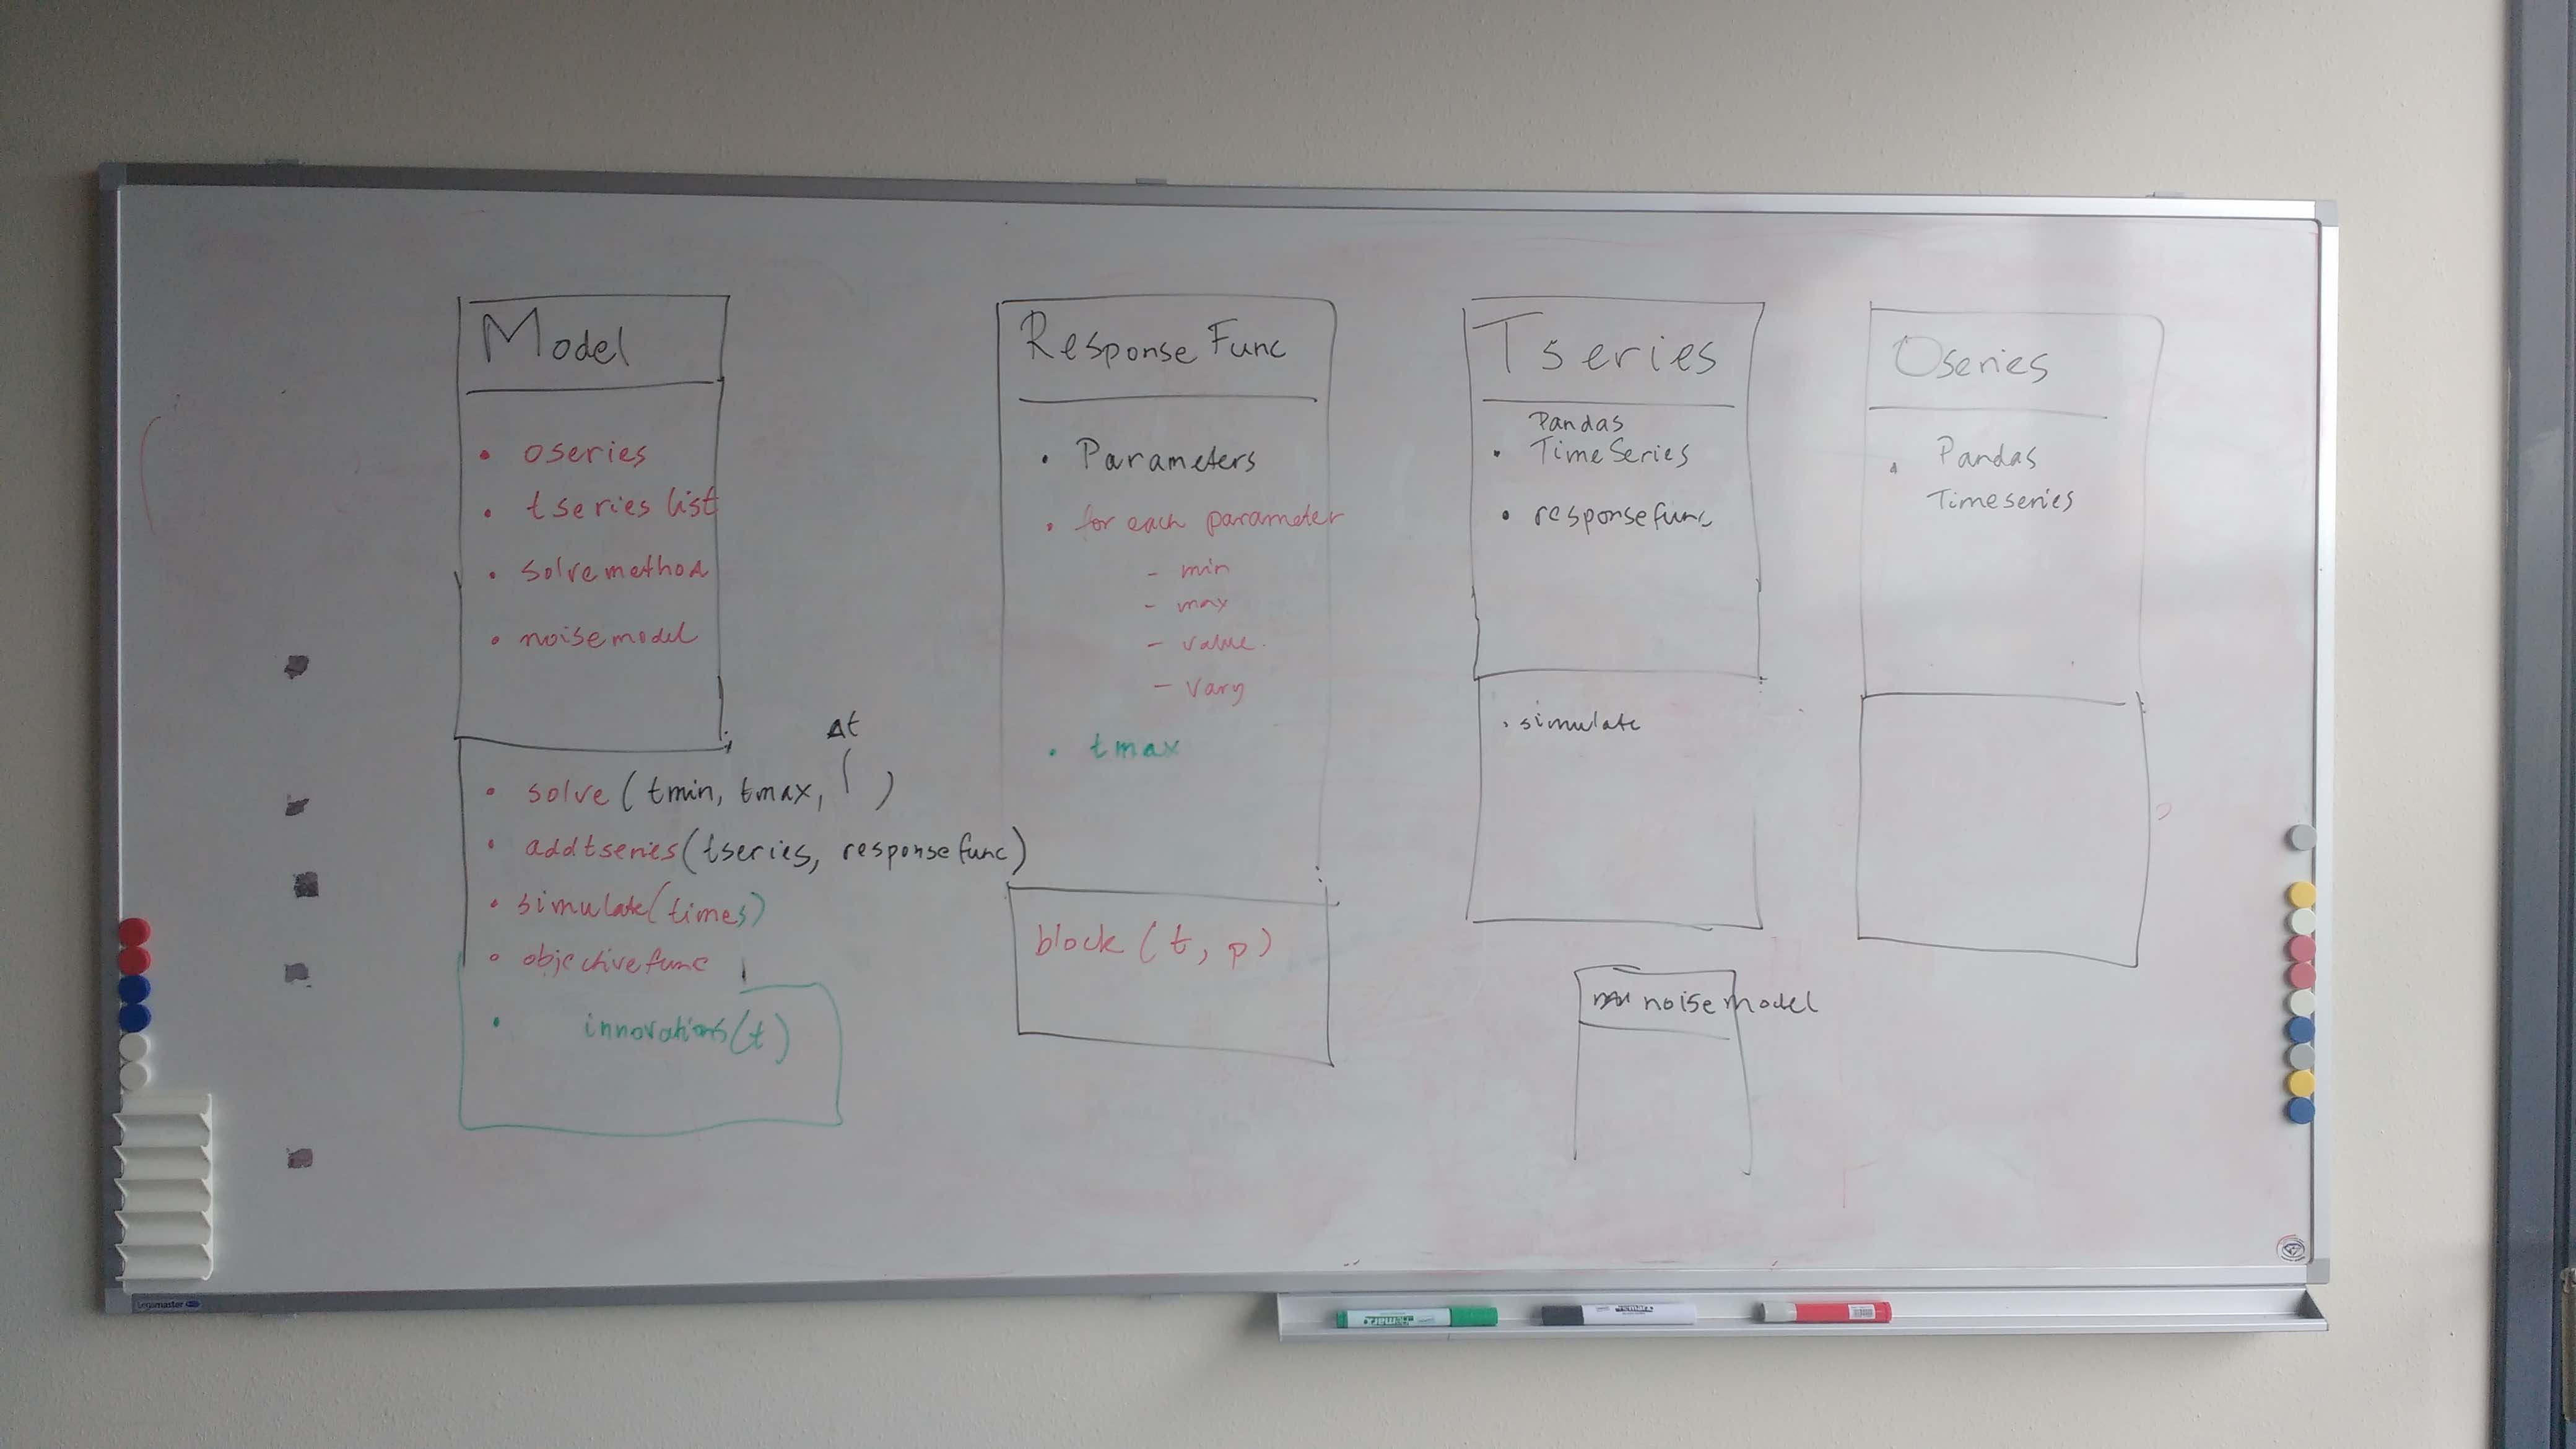 Model
• oseries
• tseries list
• solvemethod
• noisemodel
Δt
• solve (tmin, tmax, )
• addtseries(tseries, responsefunc)
• simulate(times)
• objectivefunc
• innovations(t)
Response Func
• Parameters
• for each parameter
- min
- max
- value.
- vary
• tmax
block (t, p)
Tseries
Pandas
• TimeSeries
• responsefunc
• simulate
noisemodel
Oseries
• Pandas
Timeseries
Legamaster